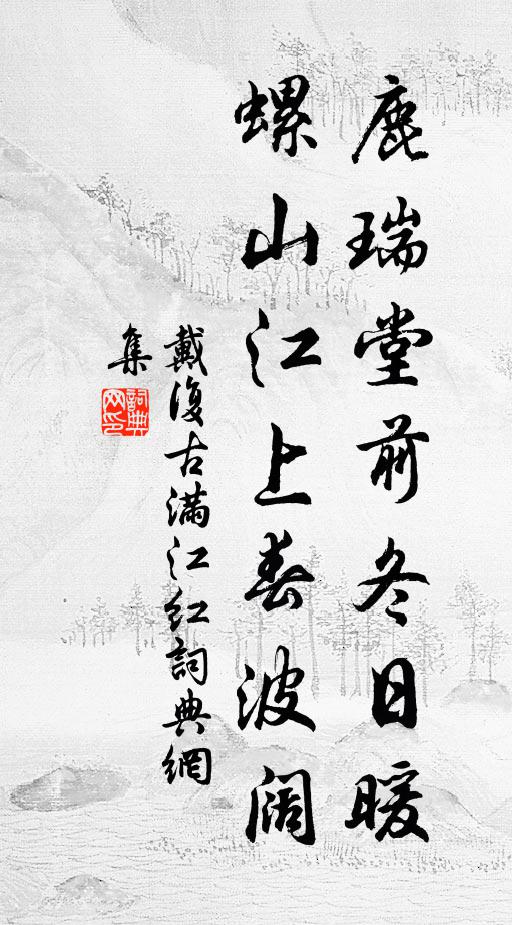 鹿瑞堂前冬日暖
螺山江上春波阔
戴復古满江红詞典網
集
詞典
网印